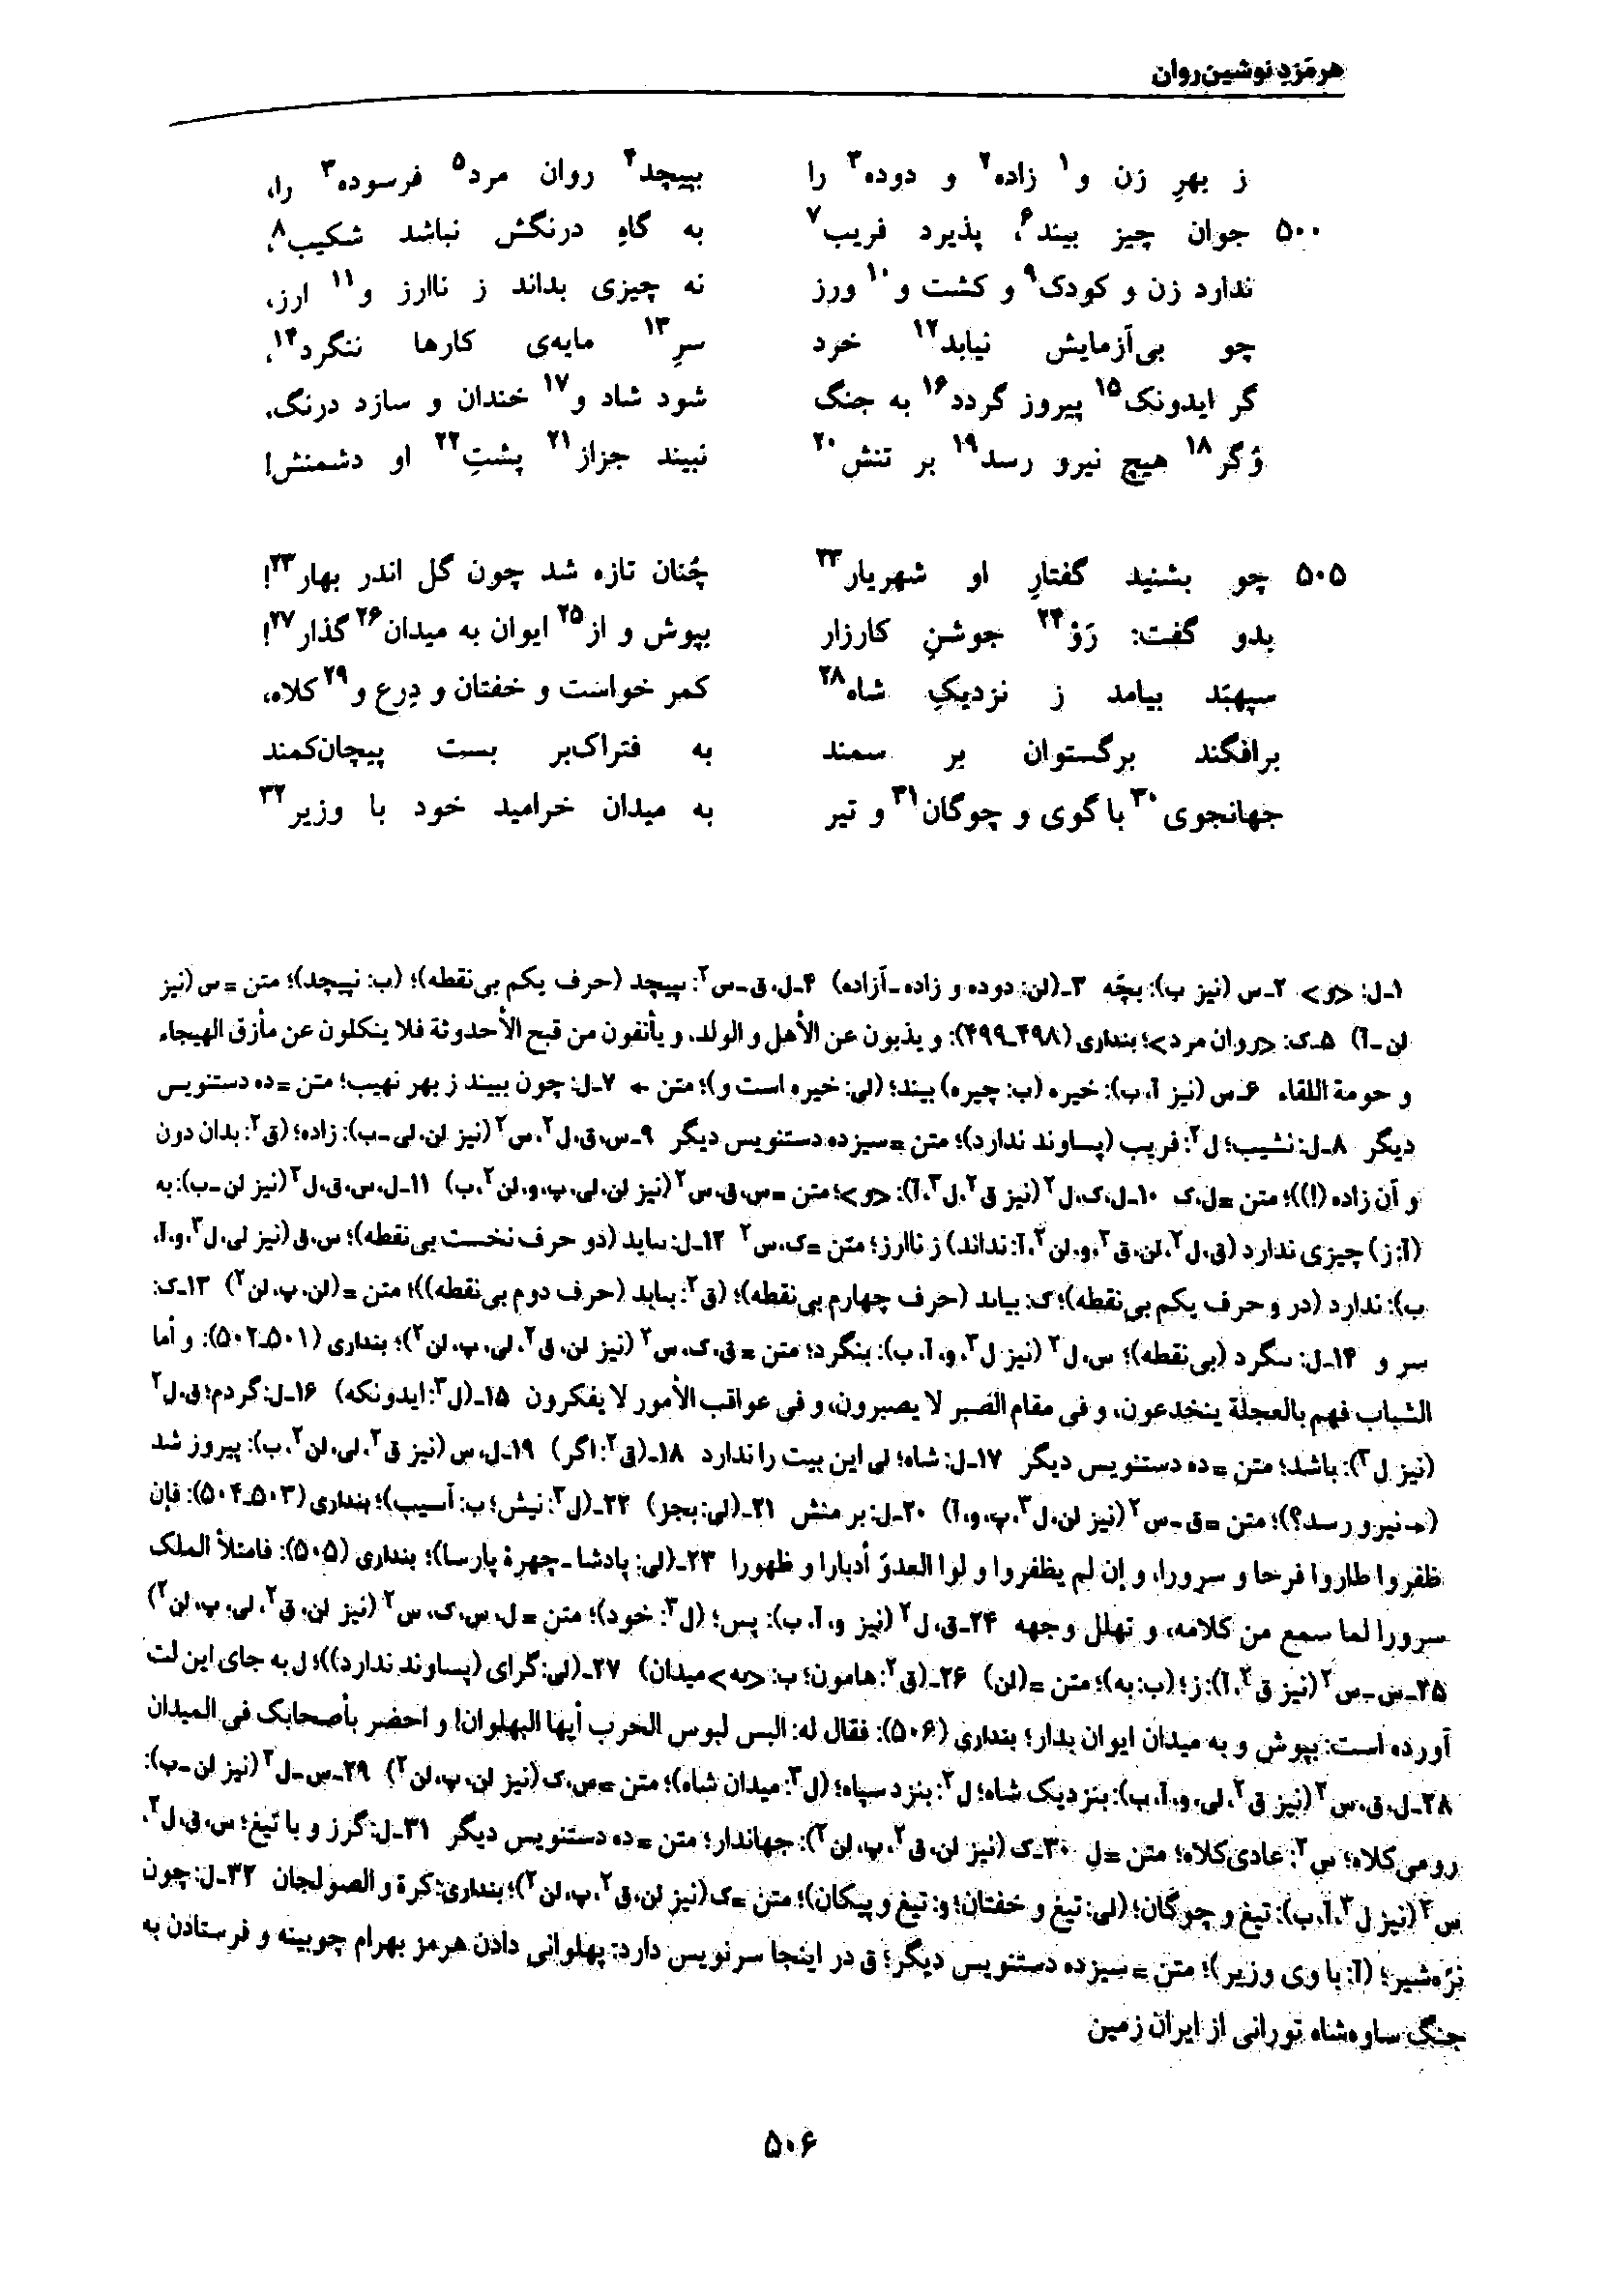 هرمزد نوشین‌روان
ز بهرِ زن و۱ زاده۲ و دوده۳ را بپیچد۴ روان مرد۵ فرسوده۳ را،
۵۰۰ جوان چیز بیند۶، پذیرد فریب۷ به گاهِ درنگش نباشد شکیب۸،
ندارد زن و کودک۹ و کشت و۱۰ ورز نه چیزی بداند ز ناارز و۱۱ ارز،
چو بی‌آزمایش نیابد۱۲ خرد سرِ۱۳ مایه‌ی کارها ننگرد۱۴،
گر ایدونک۱۵ پیروز گردد۱۶ به جنگ شود شاد و۱۷ خندان و سازد درنگ،
وُگر۱۸ هیچ نیرو رسد۱۹ بر تنش۲۰ نبیند جزاز۲۱ پشتِ۲۲ او دشمنش!
۵۰۵ چو بشنید گفتارِ او شهریار۲۳ چُنان تازه شد چون گل اندر بهار۲۳!
بدو گفت: رَوْ۲۴ جوشنِ کارزار بپوش و از۲۵ ایوان به میدان۲۶ گذار۲۷!
سپهبَد بیامد ز نزدیکِ شاه۲۸ کمر خواست و خفتان و دِرع و۲۹ کلاه،
برافگند برگستوان بر سمند به فتراک‌بر بست پیچان‌کمند
جهانجوی۳۰ با گوی و چوگان۳۱ و تیر به میدان خرامید خود با وزیر۳۲
۱ـ ل: <و> ۲ـ س (نیز ب): بچّه ۳ـ (لن: دوده و زاده ـ آزاده) ۴ـ ل، ق ـ س۲: ٮپیچد (حرف یکم بی‌نقطه)؛ (ب: نپیچد)؛ متن = س (نیز
لن ـ آ) ۵ـ ک: <روان مرد>؛ بنداری (۴۹۸ـ۴۹۹): و یذبون عن الأهل و الولد، و یأنفون من قبح الأحدوثة فلا ینکلون عن مأزق الهیجاء
و حومة اللقاء ۶ـ س (نیز آ، ب): خیره (ب: چیره) بیند؛ (لی: خیره است و)؛ متن ← ۷ـ ل: چون ببیند ز بهر نهیب؛ متن = ده دستنویس
دیگر ۸ـ ل: نشیب؛ ل۲: فریب (پساوند ندارد)؛ متن = سیزده دستنویس دیگر ۹ـ س، ق، ل۲، س۲ (نیز لن، لی ـ ب): زاده؛ (ق۲: بدان دون
و آن زاده (!))؛ متن = ل، ک ۱۰ـ ل، ک، ل۲ (نیز ق۲، ل۳، آ): <و>؛ متن = س، ق، س۲ (نیز لن، لی، پ، و، لن۲، ب) ۱۱ـ ل، س، ق، ل۲ (نیز لن ـ ب): به
(آ: ز) چیزی ندارد (ق، ل۲، لن، ق۲، و، لن۲، آ: نداند) ز ناارز؛ متن = ک، س۲ ۱۲ـ ل: ٮٮابد (دو حرف نخست بی‌نقطه)؛ س، ق (نیز لی، ل۳، و، آ،
ب): ندارد (در و حرف یکم بی‌نقطه)؛ ک: بیاٮد (حرف چهارم بی‌نقطه)؛ (ق۲: بٮابد (حرف دوم بی‌نقطه))؛ متن = (لن، پ، لن۲) ۱۳ـ ک:
سر و ۱۴ـ ل: ٮٮگرد (بی‌نقطه)؛ س، ل۲ (نیز ل۳، و، آ، ب): بنگرد؛ متن = ق، ک، س۲ (نیز لن، ق۲، لی، پ، لن۲)؛ بنداری (۵۰۱ـ۵۰۲): و أما
الشباب فهم بالعجلة ینخدعون، و فی مقام الصبر لا یصبرون، و فی عواقب الأمور لا یفکرون ۱۵ـ (ل۳: ایدونکه) ۱۶ـ ل: گردم؛ ق، ل۲
(نیز ل۳): باشد؛ متن = ده دستنویس دیگر ۱۷ـ ل: شاه؛ لی این بیت را ندارد ۱۸ـ (ق۲: اگر) ۱۹ـ ل، س (نیز ق۲، لی، لن۲، ب): پیروز شد
(← نیرو رسد؟)؛ متن = ق ـ س۲ (نیز لن، ل۳، پ، و، آ) ۲۰ـ ل: بر منش ۲۱ـ (لی: بجز) ۲۲ـ (ل۳: نیش؛ ب: آسیب)؛ بنداری (۵۰۳ـ۵۰۴): فإن
ظفروا طاروا فرحا و سرورا، و إن لم یظفروا و لوا العدوّ أدبارا و ظهورا ۲۳ـ (لی: پادشا ـ چهرهٔ پارسا)؛ بنداری (۵۰۵): فامتلأ الملک
سرورا لما سمع من کلامه، و تهلل وجهه ۲۴ـ ق، ل۲ (نیز و، آ، ب): پس؛ (ل۳: خود)؛ متن = ل، س، ک، س۲ (نیز لن، ق۲، لی، پ، لن۲)
۲۵ـ س ـ س۲ (نیز ق۲، آ): ز؛ (ب: به)؛ متن = (لن) ۲۶ـ (ق۲: هامون؛ ب: <به> میدان) ۲۷ـ (لی: گرای (پساوند ندارد))؛ ل به جای این لت
آورده است: بپوش و به میدان ایوان بدار؛ بنداری (۵۰۶): فقال له: البس لبوس الحرب أیها البهلوان! و احضر بأصحابک فی المیدان
۲۸ـ ل، ق، س۲ (نیز ق۲، لی، و، آ، ب): بنزدیک شاه؛ ل۲: بنزد سپاه؛ (ل۳: میدان شاه)؛ متن = س، ک (نیز لن، پ، لن۲) ۲۹ـ س ـ ل۲ (نیز لن ـ ب):
رومی‌کلاه؛ س۲: عادی‌کلاه؛ متن = ل ۳۰ـ ک (نیز لن، ق۲، پ، لن۲): جهاندار؛ متن = ده دستنویس دیگر ۳۱ـ ل: گرز و با تیغ؛ س، ق، ل۲،
س۲ (نیز ل۳، آ، ب): تیغ و چوگان؛ (لی: تیغ و خفتان؛ و: تیغ و پیکان)؛ متن = ک (نیز لن، ق۲، پ، لن۲)؛ بنداری: کرة و الصولجان ۳۲ـ ل: چون
نرّه‌شیر؛ (آ: با وی وزیر)؛ متن = سیزده دستنویس دیگر؛ ق در اینجا سرنویس دارد: پهلوانی دادن هرمز بهرام چوبینه و فرستادن به
جنگ ساوه‌شاه تورانی از ایران زمین
۵۰۶